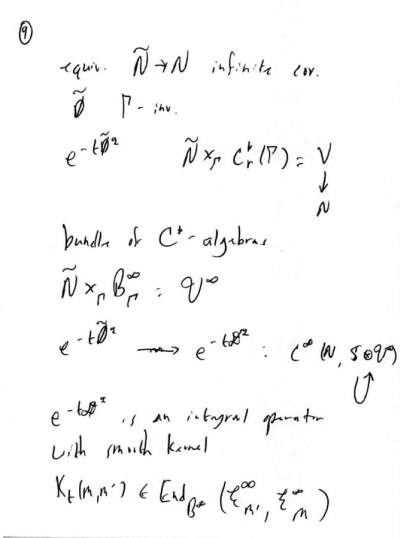 9
equiv. Ñ → N infinite cov.
D̸̃ Γ-inv.
e^{-tD̸̃²} Ñ ×_Γ C*_r(Γ) = V
↓
N
bundle of C*-algebras
Ñ ×_Γ B^∞_Γ = V^∞
e^{-tD̸̃²} ⟿ e^{-tD̸²} : C^∞(N, S⊗V^∞)
e^{-tD̸²} is an integral operator
with smooth kernel
K_t(m,m') ∈ End_{B^∞} (ξ^∞_{m'}, ξ^∞_m)